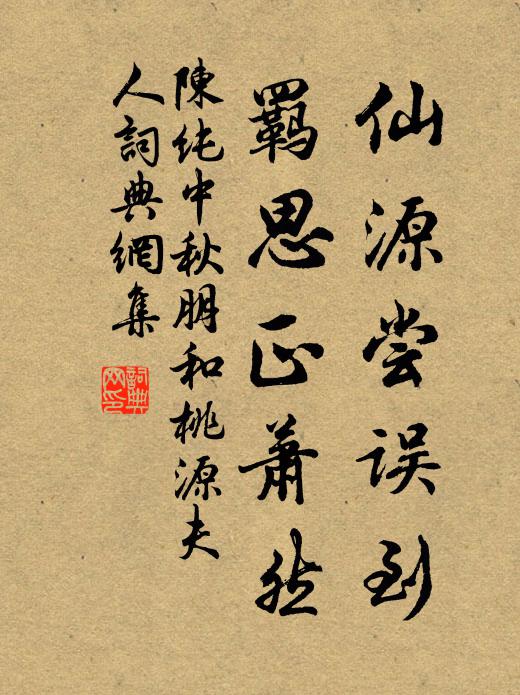 仙源尝误到
羁思正萧然
陳純中秋朋和桃源夫
人詞典網集
詞典
网印